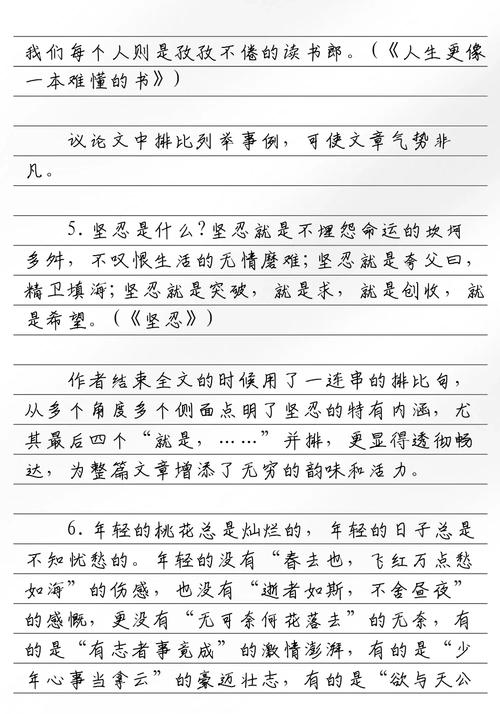 我们每个人则是孜孜不倦的读书郎。(《人生更像
一本难懂的书》)
议论文中排比列举事例，可使文章气势非
凡。
5.坚忍是什么?坚忍就是不埋怨命运的坎坷
多舛，不叹恨生活的无情磨难;坚忍就是夸父曰，
精卫填海;坚忍就是突破，就是求，就是创收，就
是希望。(《坚忍》)
作者结束全文的时候用了一连串的排比句，
从多个角度多个侧面点明了坚忍的特有内涵，尤
其最后四个“就是，……”并排，更显得透彻畅
达，为整篇文章增添了无穷的韵味和活力。
6.年轻的桃花总是灿烂的，年轻的日子总是
不知忧愁的。年轻的没有“春去也，飞红万点愁
如海”的伤感，也没有“逝者如斯，不舍昼夜”
的感慨，更没有“无可奈何花落去”的无奈，有
的是“有志者事竟成”的激情澎湃，有的是“少
年心事当拿云”的豪迈壮志，有的是“欲与天公